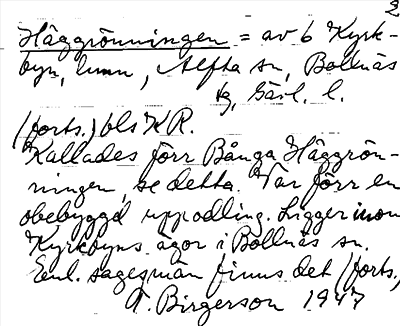 2
Häggrönningen = av 6 Kyrk-
byn, hmn, Alfta sn, Bollnäs
tg, Gävl. l.
(forts.) bls KR.
Kallades förr Bånga Häggrön-
ningen, se detta. Var förr en
obebyggd uppodling. Ligger inom
Kyrkbyns ägor i Bollnäs sn.
Enl. sagesmän finns det (forts.)
A. Birgerson 1947